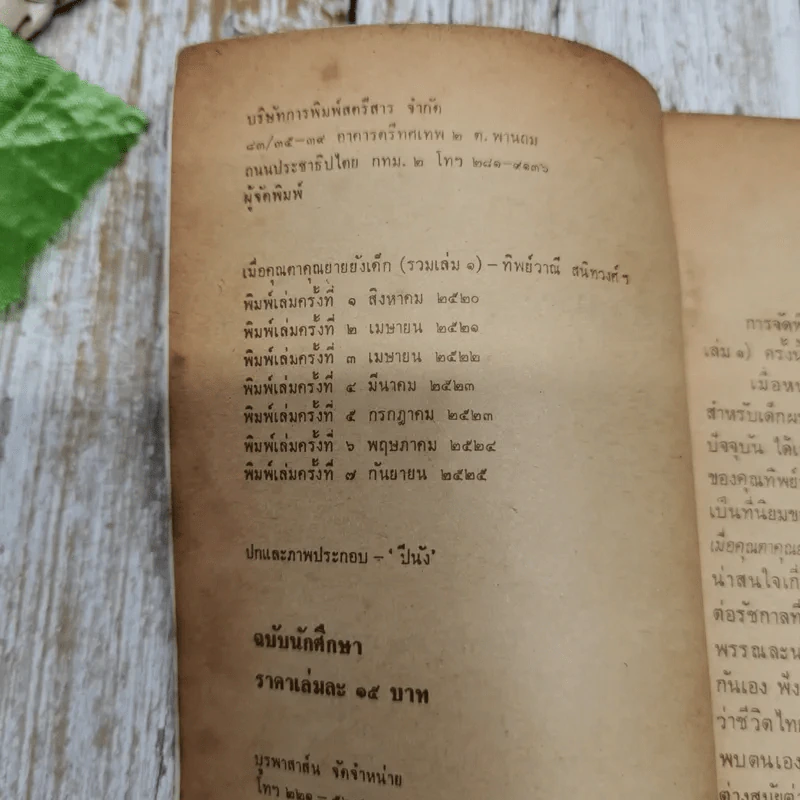 บริษัทการพิมพ์สตรีสาร จำกัด
๘๓/๓๕-๓๙ อาคารตรีทศเทพ ๒ ต. พานถม
ถนนประชาธิปไตย กทม. ๒ โทร ๒๘๑-๙๑๓๖
ผู้จัดพิมพ์
เมื่อคุณตาคุณยายยังเด็ก (รวมเล่ม ๑) – ทิพย์วาณี สนิทวงศ์ ฯ
พิมพ์เล่มครั้งที่ ๑ สิงหาคม ๒๕๒๐
พิมพ์เล่มครั้งที่ ๒ เมษายน ๒๕๒๑
พิมพ์เล่มครั้งที่ ๓ เมษายน ๒๕๒๒
พิมพ์เล่มครั้งที่ ๔ มีนาคม ๒๕๒๓
พิมพ์เล่มครั้งที่ ๕ กรกฎาคม ๒๕๒๓
พิมพ์เล่มครั้งที่ ๖ พฤษภาคม ๒๕๒๔
พิมพ์เล่มครั้งที่ ๗ กันยายน ๒๕๒๕
ปกและภาพประกอบ – ' ปีนัง'
ฉบับนักศึกษา
ราคาเล่มละ ๑๕ บาท
บูรพาสาส์น จัดจำหน่าย
โทร ๒๒๑ –
การจัดพิ
เล่ม ๑) ครั้งนี้
เมื่อหน
สำหรับเด็กผ
ปัจจุบัน ได้เ
ของคุณทิพย์
เป็นที่นิยมข
เมื่อคุณตาคุณย
น่าสนใจเกี่
ต่อรัชกาลที่
พรรณละน
กันเอง ฟัง
ว่าชีวิตไทย
พบตนเอง
ต่างสมัยต่